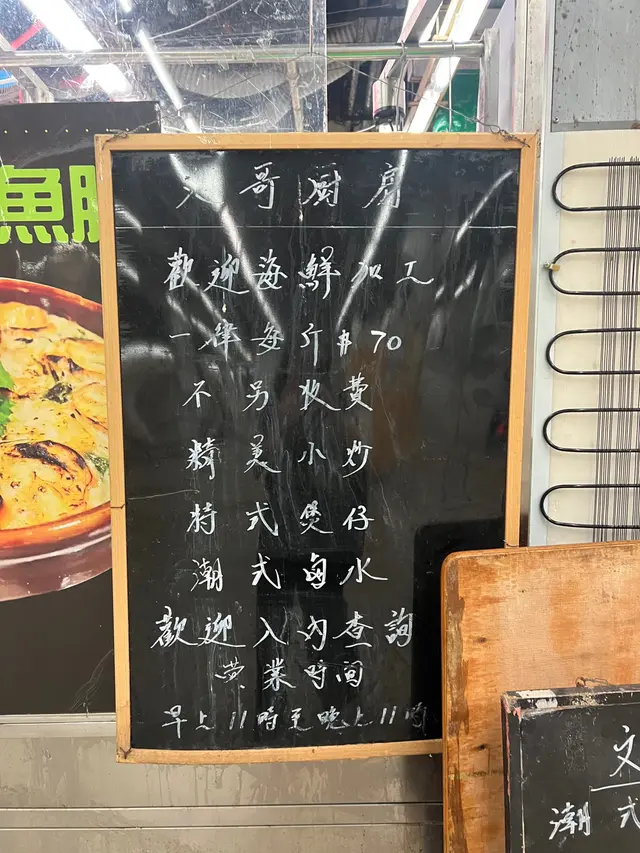 哥厨房
歡迎海鮮加工
一律每斤$70
不另收費
精美小炒
特式煲仔
潮式卤水
歡迎入內查詢
营業時间
早上11時至晚上11時
魚
文
潮式